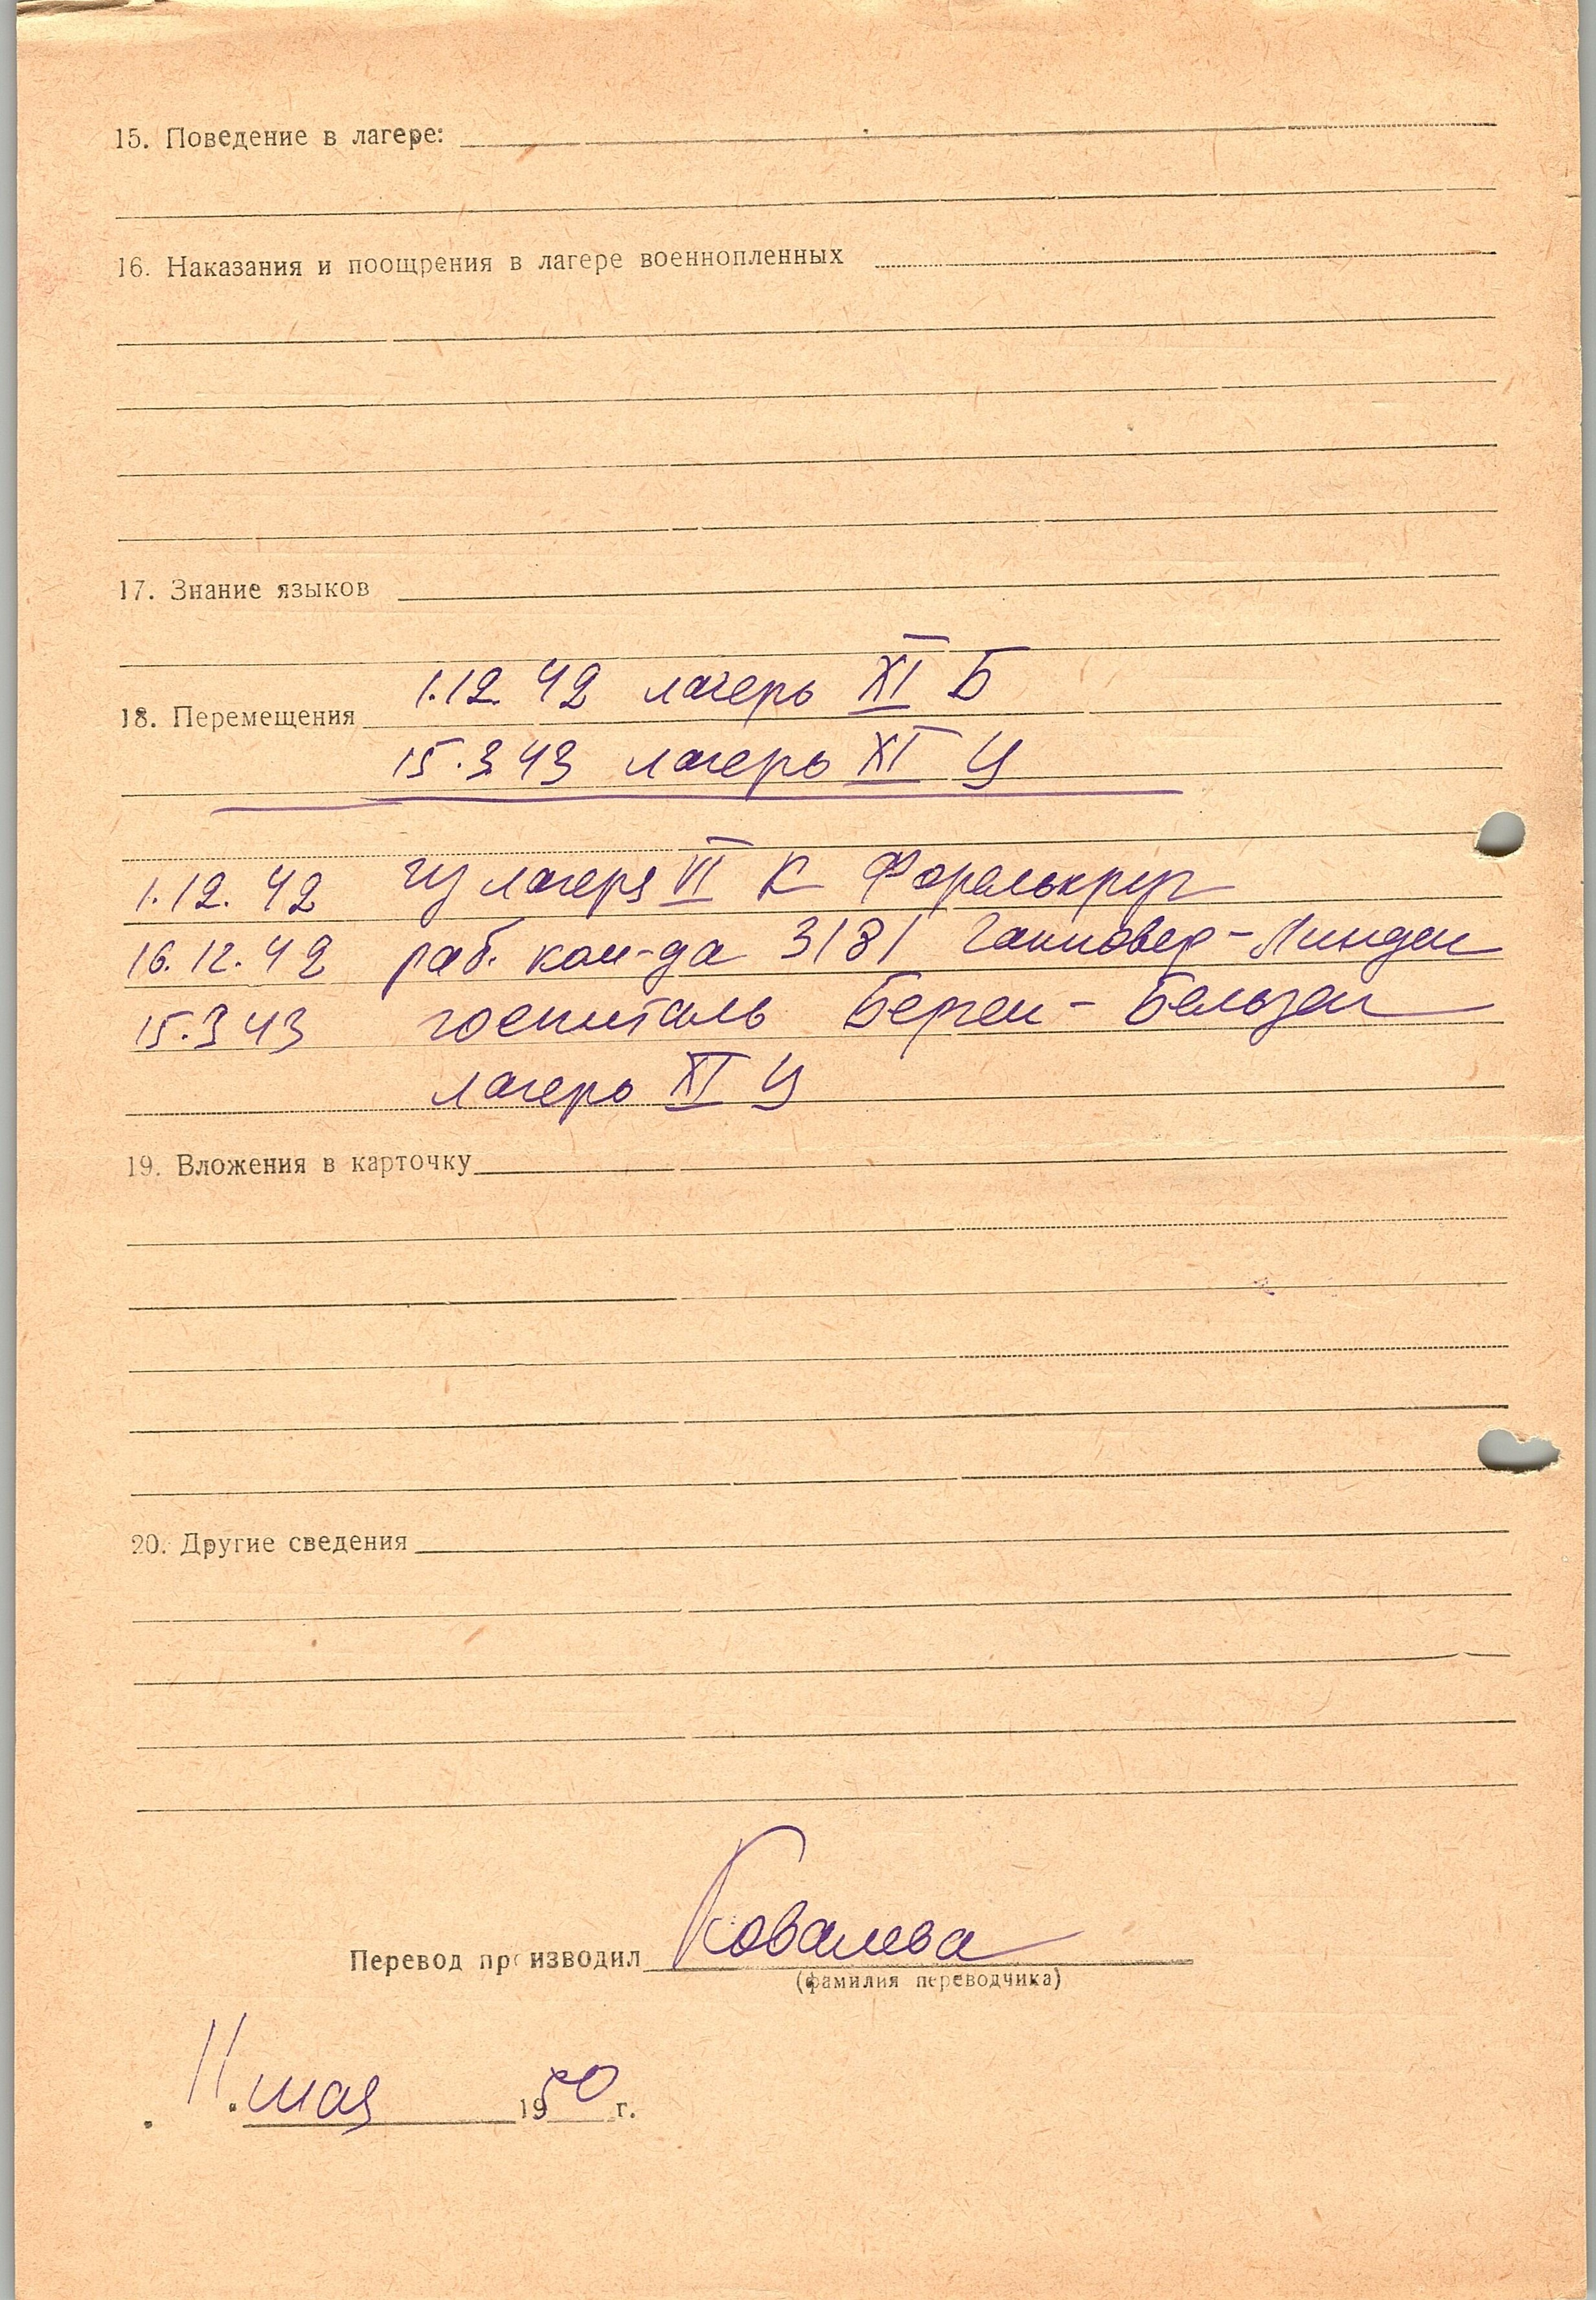 15. Поведение в лагере:
16. Наказания и поощрения в лагере военнопленных
17. Знание языков
1.12.42 лагерь XI Б
18. Перемещения
15.3.43 лагерь XI Ц
1.12.42 из лагеря VI К Форелькруг
16.12.42 раб. ком-да 3181 Ганновер-Линден
15.3.43 госпиталь Берген-Бельзен
лагерь XI Ц
19. Вложения в карточку
20. Другие сведения
Перевод производил Ковалева
(фамилия переводчика)
11 мая 1950 г.